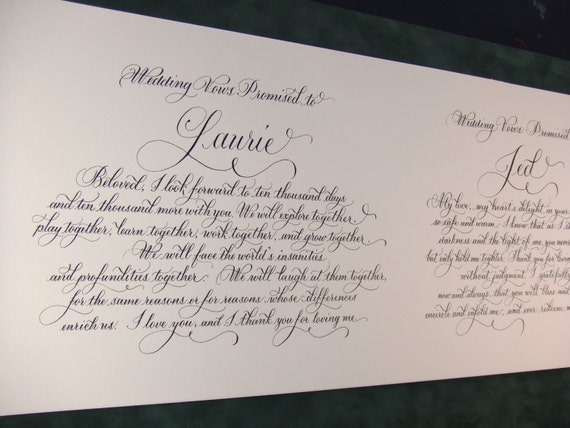 Wedding Vows Promised to
Laurie
Beloved, I look forward to ten thousand days
and ten thousand more with you. We will explore together,
play together, learn together, work together, and grow together.
We will face the world's insanities
and profundities together. We will laugh at them together,
for the same reasons or for reasons whose differences
enrich us. I love you, and I thank you for loving me.
Wedding Vows Promised
Jed
My love, my heart's delight, in your
so safe and warm. I know that as I
darkness and the light of me, you never
but only hold me tighter. Thank you for loving
without judgment. I gratefully
now and always, that you will bless and
encircle and infold me, and ever, redeem